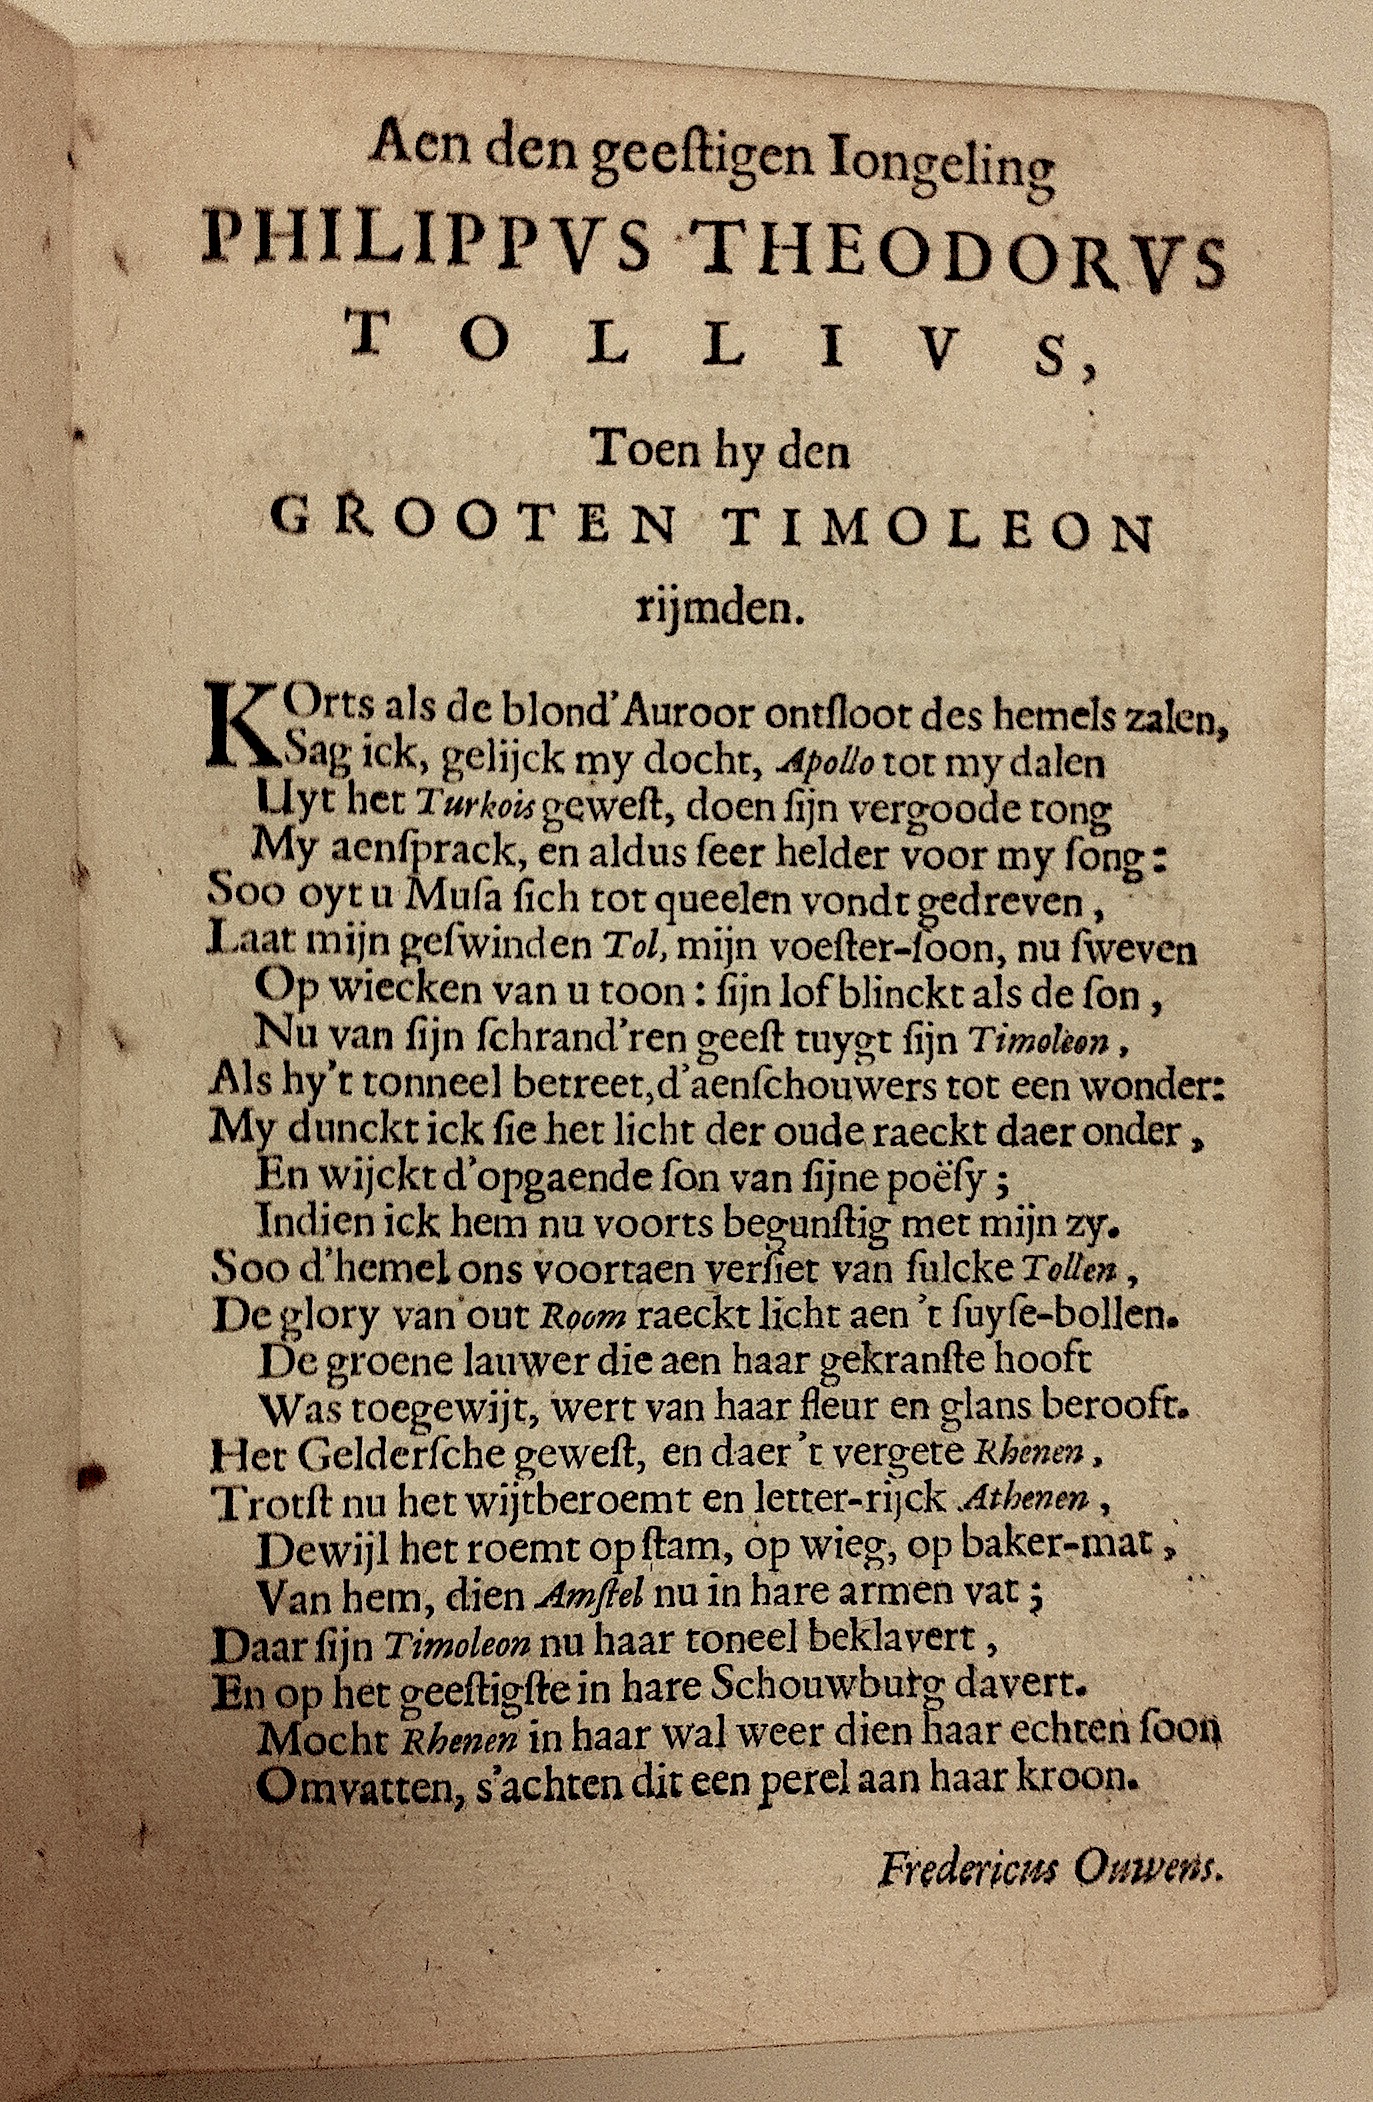 Aen den geeſtigen Iongeling
PHILIPPVS THEODORVS
TOLLIVS,
Toen hy den
GROOTEN TIMOLEON
rijmden.
KOrts als de blond'Auroor ontſloot des hemels zalen,
Sag ick, gelijck my docht, Apollo tot my dalen
Uyt het Turkois geweſt, doen ſijn vergoode tong
My aenſprack, en aldus ſeer helder voor my ſong:
Soo oyt u Muſa ſich tot queelen vondt gedreven,
Laat mijn geſwinden Tol, mijn voeſter-ſoon, nu ſweven
Op wiecken van u toon: ſijn lof blinckt als de ſon,
Nu van ſijn ſchrand'ren geeſt tuygt ſijn Timoleon,
Als hy't tonneel betreet, d'aenſchouwers tot een wonder:
My dunckt ick ſie het licht der oude raeckt daer onder,
En wijckt d'opgaende ſon van ſijne poëſy;
Indien ick hem nu voorts begunſtig met mijn zy.
Soo d'hemel ons voortaen verſiet van ſulcke Tollen,
De glory van out Room raeckt licht aen 't ſuyſe-bollen.
De groene lauwer die aen haar gekranſte hooft
Was toegewijt, wert van haar fleur en glans berooft.
Het Gelderſche geweſt, en daer 't vergete Rhenen,
Trotſt nu het wijtberoemt en letter-rijck Athenen,
Dewijl het roemt op ſtam, op wieg, op baker-mat,
Van hem, dien Amſtel nu in hare armen vat;
Daar ſijn Timoleon nu haar toneel beklavert,
En op het geeſtigſte in hare Schouwburg davert.
Mocht Rhenen in haar wal weer dien haar echten ſoon
Omvatten, s'achten dit een perel aan haar kroon.
Fredericus Ouwens.